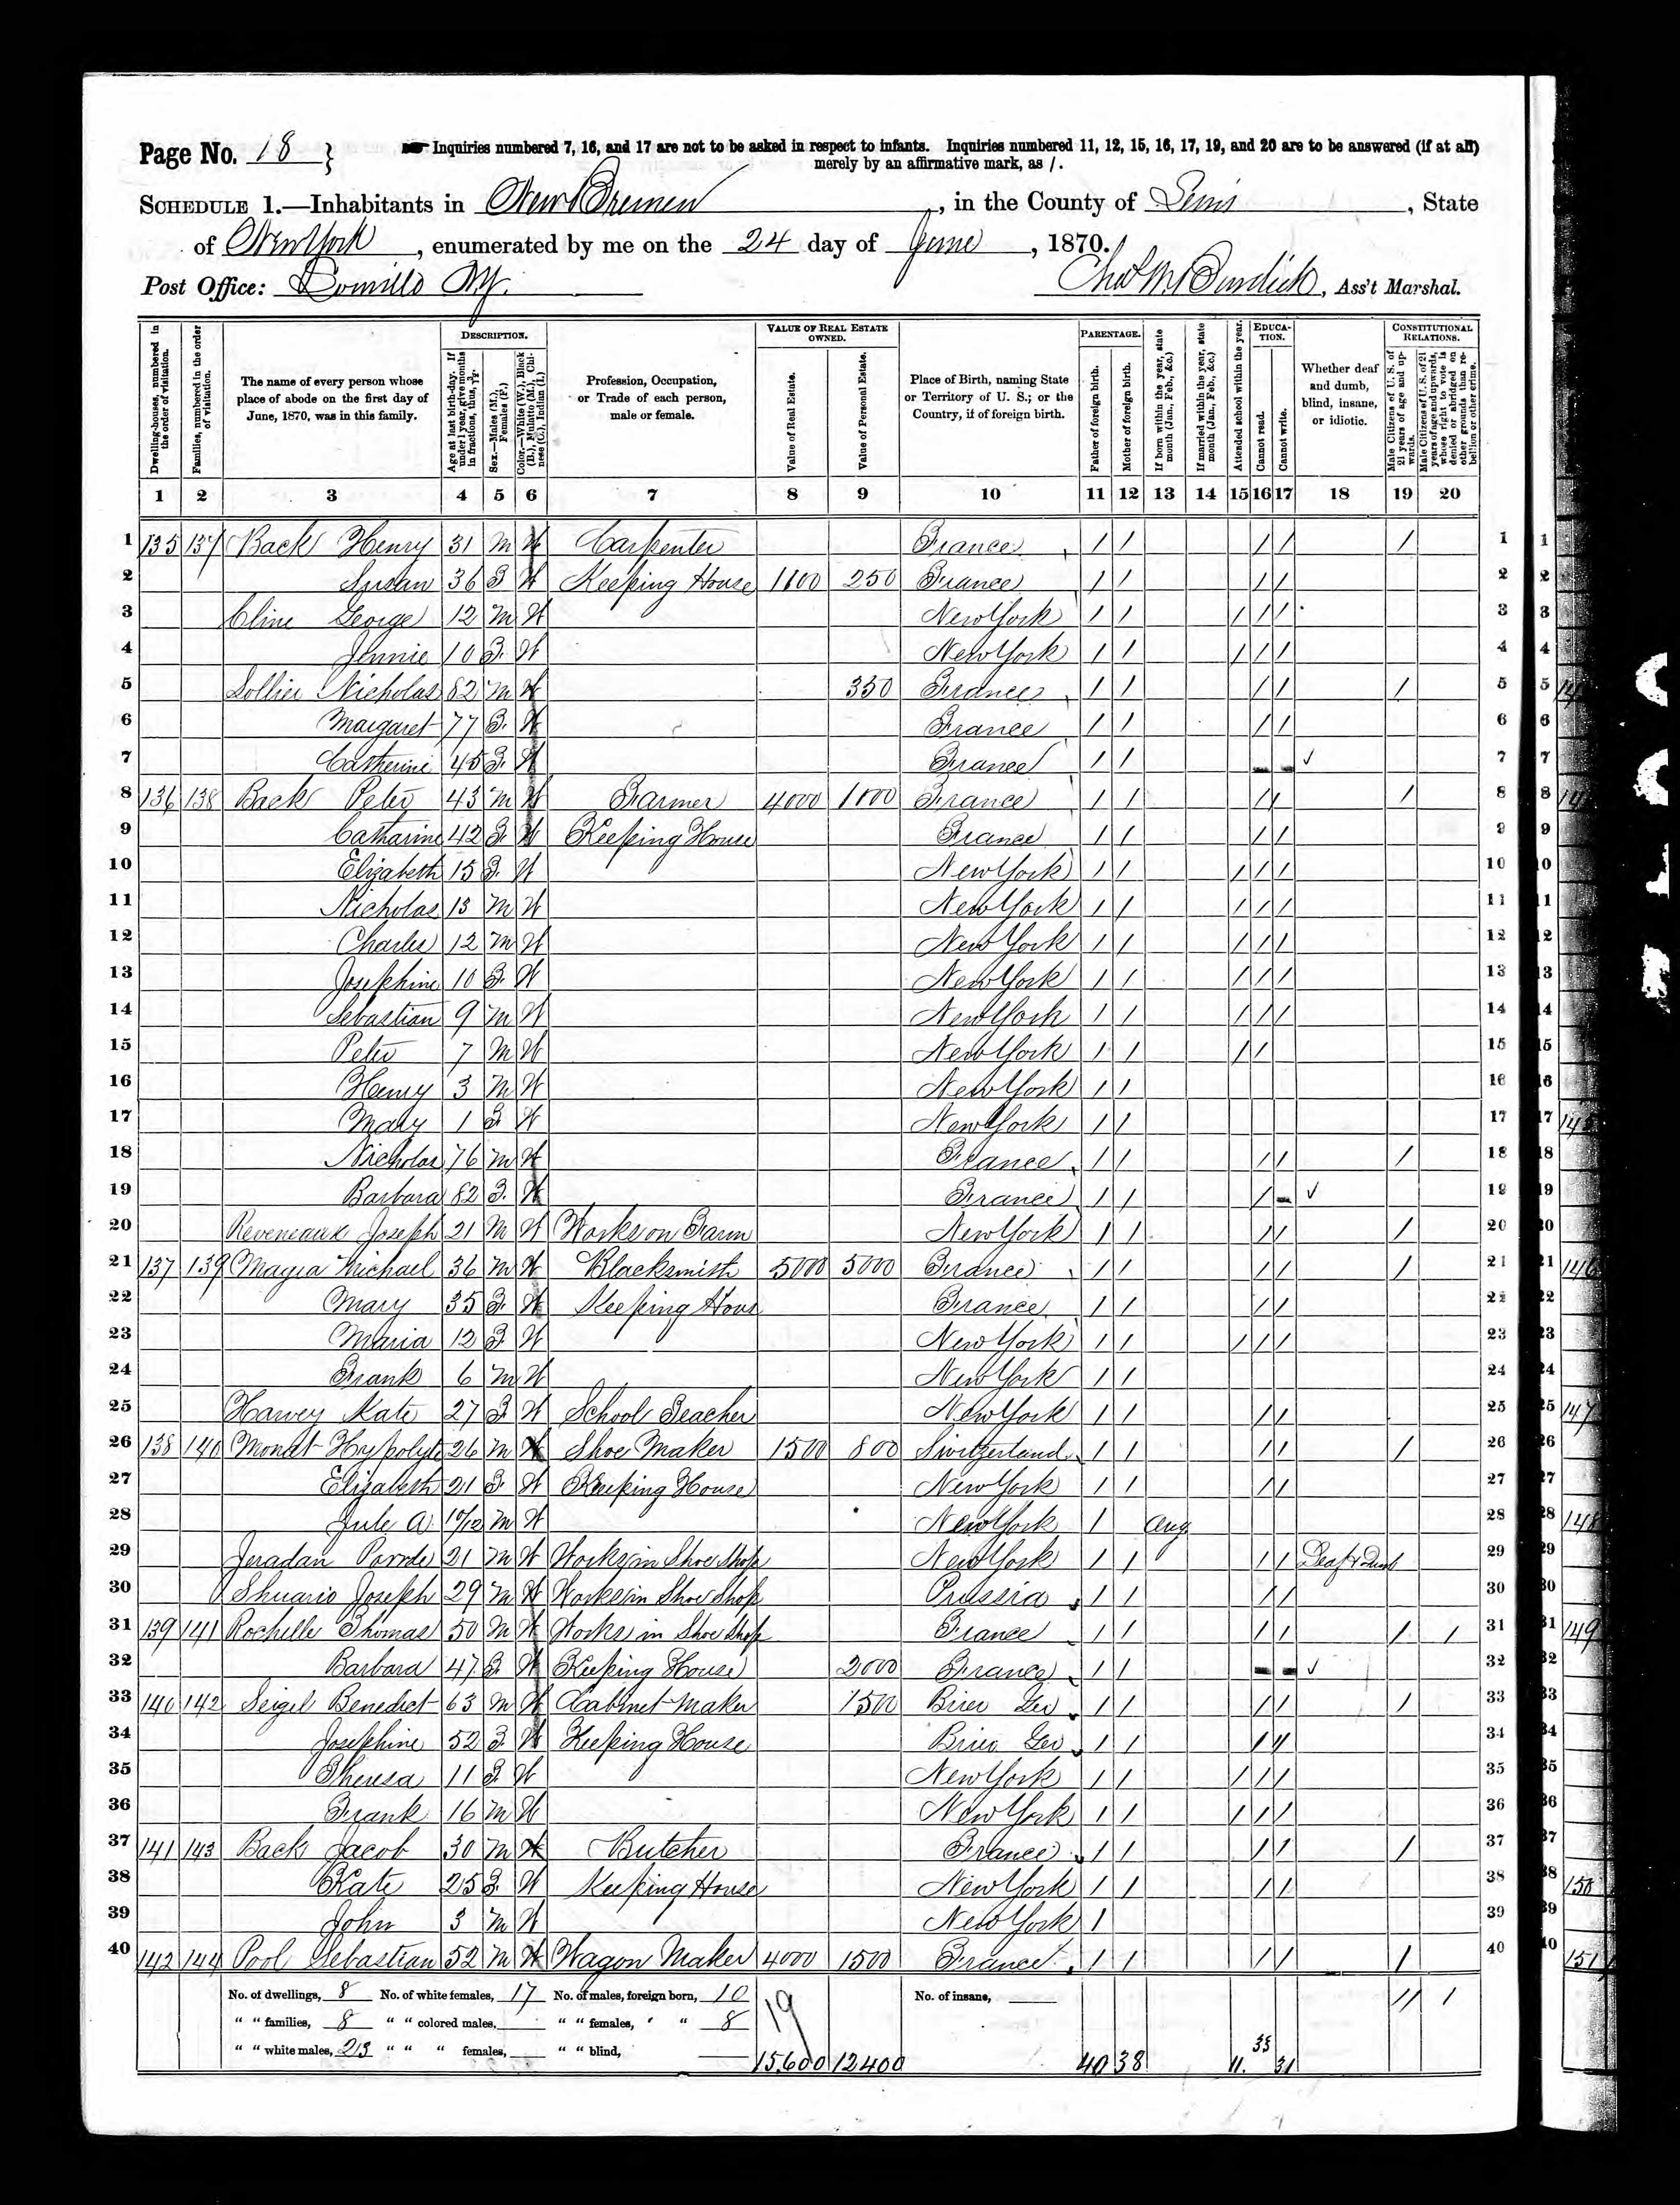 Page No. 18 }
Inquiries numbered 7, 16, and 17 are not to be asked in respect to infants. Inquiries numbered 11, 12, 15, 16, 17, 19, and 20 are to be answered (if at all)
merely by an affirmative mark, as /.
SCHEDULE 1.—Inhabitants in New Bremen, in the County of Lewis, State
of New York, enumerated by me on the 24 day of June, 1870.
Post Office: Lowville NY. Chas M Burdick, Ass't Marshal.
Dwelling-houses, numbered in the order of visitation.
Families, numbered in the order of visitation.
The name of every person whose place of abode on the first day of June, 1870, was in this family.
DESCRIPTION.
Age at last birth-day. If under 1 year, give months in fractions, thus, 3/12.
Sex.—Males (M.), Females (F.)
Color.—White (W.), Black (B.), Mulatto (M.), Chinese (C.), Indian (I.)
Profession, Occupation, or Trade of each person, male or female.
VALUE OF REAL ESTATE OWNED.
Value of Real Estate.
Value of Personal Estate.
Place of Birth, naming State or Territory of U. S.; or the Country, if of foreign birth.
PARENTAGE.
Father of foreign birth.
Mother of foreign birth.
If born within the year, state month (Jan., Feb., &c.)
If married within the year, state month (Jan., Feb., &c.)
Attended school within the year.
EDUCATION.
Cannot read.
Cannot write.
Whether deaf and dumb, blind, insane, or idiotic.
CONSTITUTIONAL RELATIONS.
Male Citizens of U. S. of 21 years of age and upwards.
Male Citizens of U. S. of 21 years of age and upwards, whose right to vote is denied or abridged on other grounds than rebellion or other crime.
1 2 3 4 5 6 7 8 9 10 11 12 13 14 15 16 17 18 19 20
1 135 137 Back Henry 31 M W Carpenter France / / / / / 1
2 Susan 36 F W Keeping House 1100 250 France / / / / 2
3 Cline George 12 M W New York / / / / / 3
4 Jennie 10 F W New York / / / / / 4
5 Lollier Nicholas 82 M W 350 France / / / / / 5
6 Margaret 77 F W France / / / / 6
7 Catherine 45 F W France / / ✓ 7
8 136 138 Back Peter 43 M W Farmer 4000 1000 France / / / / / 8
9 Catharine 42 F W Keeping House France / / / / 9
10 Elizabeth 15 F W New York / / / / / 10
11 Nicholas 13 M W New York / / / / / 11
12 Charles 12 M W New York / / / / / 12
13 Josephine 10 F W New York / / / / / 13
14 Sebastian 9 M W New York / / / / / 14
15 Peter 7 M W New York / / / / 15
16 Henry 3 M W New York / / 16
17 Mary 1 F W New York / / 17
18 Nicholas 76 M W France / / / / / 18
19 Barbara 82 F W France / / / ✓ 19
20 Joseph 21 M W Works on Farm New York / / / / / 20
21 137 139 Michael 36 M W Blacksmith 5000 5000 France / / / / / 21
22 Mary 35 F W Keeping Hous France / / / / 22
23 Maria 12 F W New York / / / / / 23
24 Frank 6 M W New York / / 24
25 Harvey Kate 27 F W School Teacher New York / / / / 25
26 138 140 Monat Hypolyte 26 M W Shoe Maker 1500 800 Switzerland / / / / / 26
27 Elizabeth 21 F W Keeping House New York / / / / 27
28 Jule A 10/12 M W New York / Aug 28
29 21 M W Works in Shoe Shop New York / / / / Deaf & Dumb 29
30 Joseph 29 M W Works in Shoe Shop Prussia / / / / 30
31 139 141 Rochelle Thomas 50 M W Works in Shoe Shop France / / / / / / 31
32 Barbara 47 F W Keeping House 2000 France / / ✓ 32
33 140 142 Seigel Benedict 63 M W Cabinet Maker 1500 / / / / / 33
34 Josephine 52 F W Keeping House / / / / 34
35 Theresa 11 F W New York / / / / / 35
36 Frank 16 M W New York / / / / / 36
37 141 143 Back Jacob 30 M W Butcher France / / / / / 37
38 Kate 25 F W Keeping House New York / / / / 38
39 John 3 M W New York / 39
40 142 144 Pool Sebastian 52 M W Wagon Maker 4000 1500 France / / / / / 40
No. of dwellings, 8 No. of white females, 17 No. of males, foreign born, 10 No. of insane, 11 1
" " families, 8 " " colored males, " " females, " " 8 19
" " white males, 23 " " " females, " " blind, 15,600 12400 40 38 11. 35 31